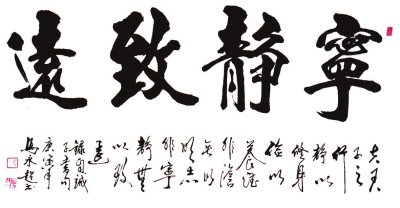 寧靜致遠
夫君
子之
行
靜以
修身
儉以
養德
非澹
無以
明志
非寧
靜無
以致
遠
錄自誡
子書句
庚寅年